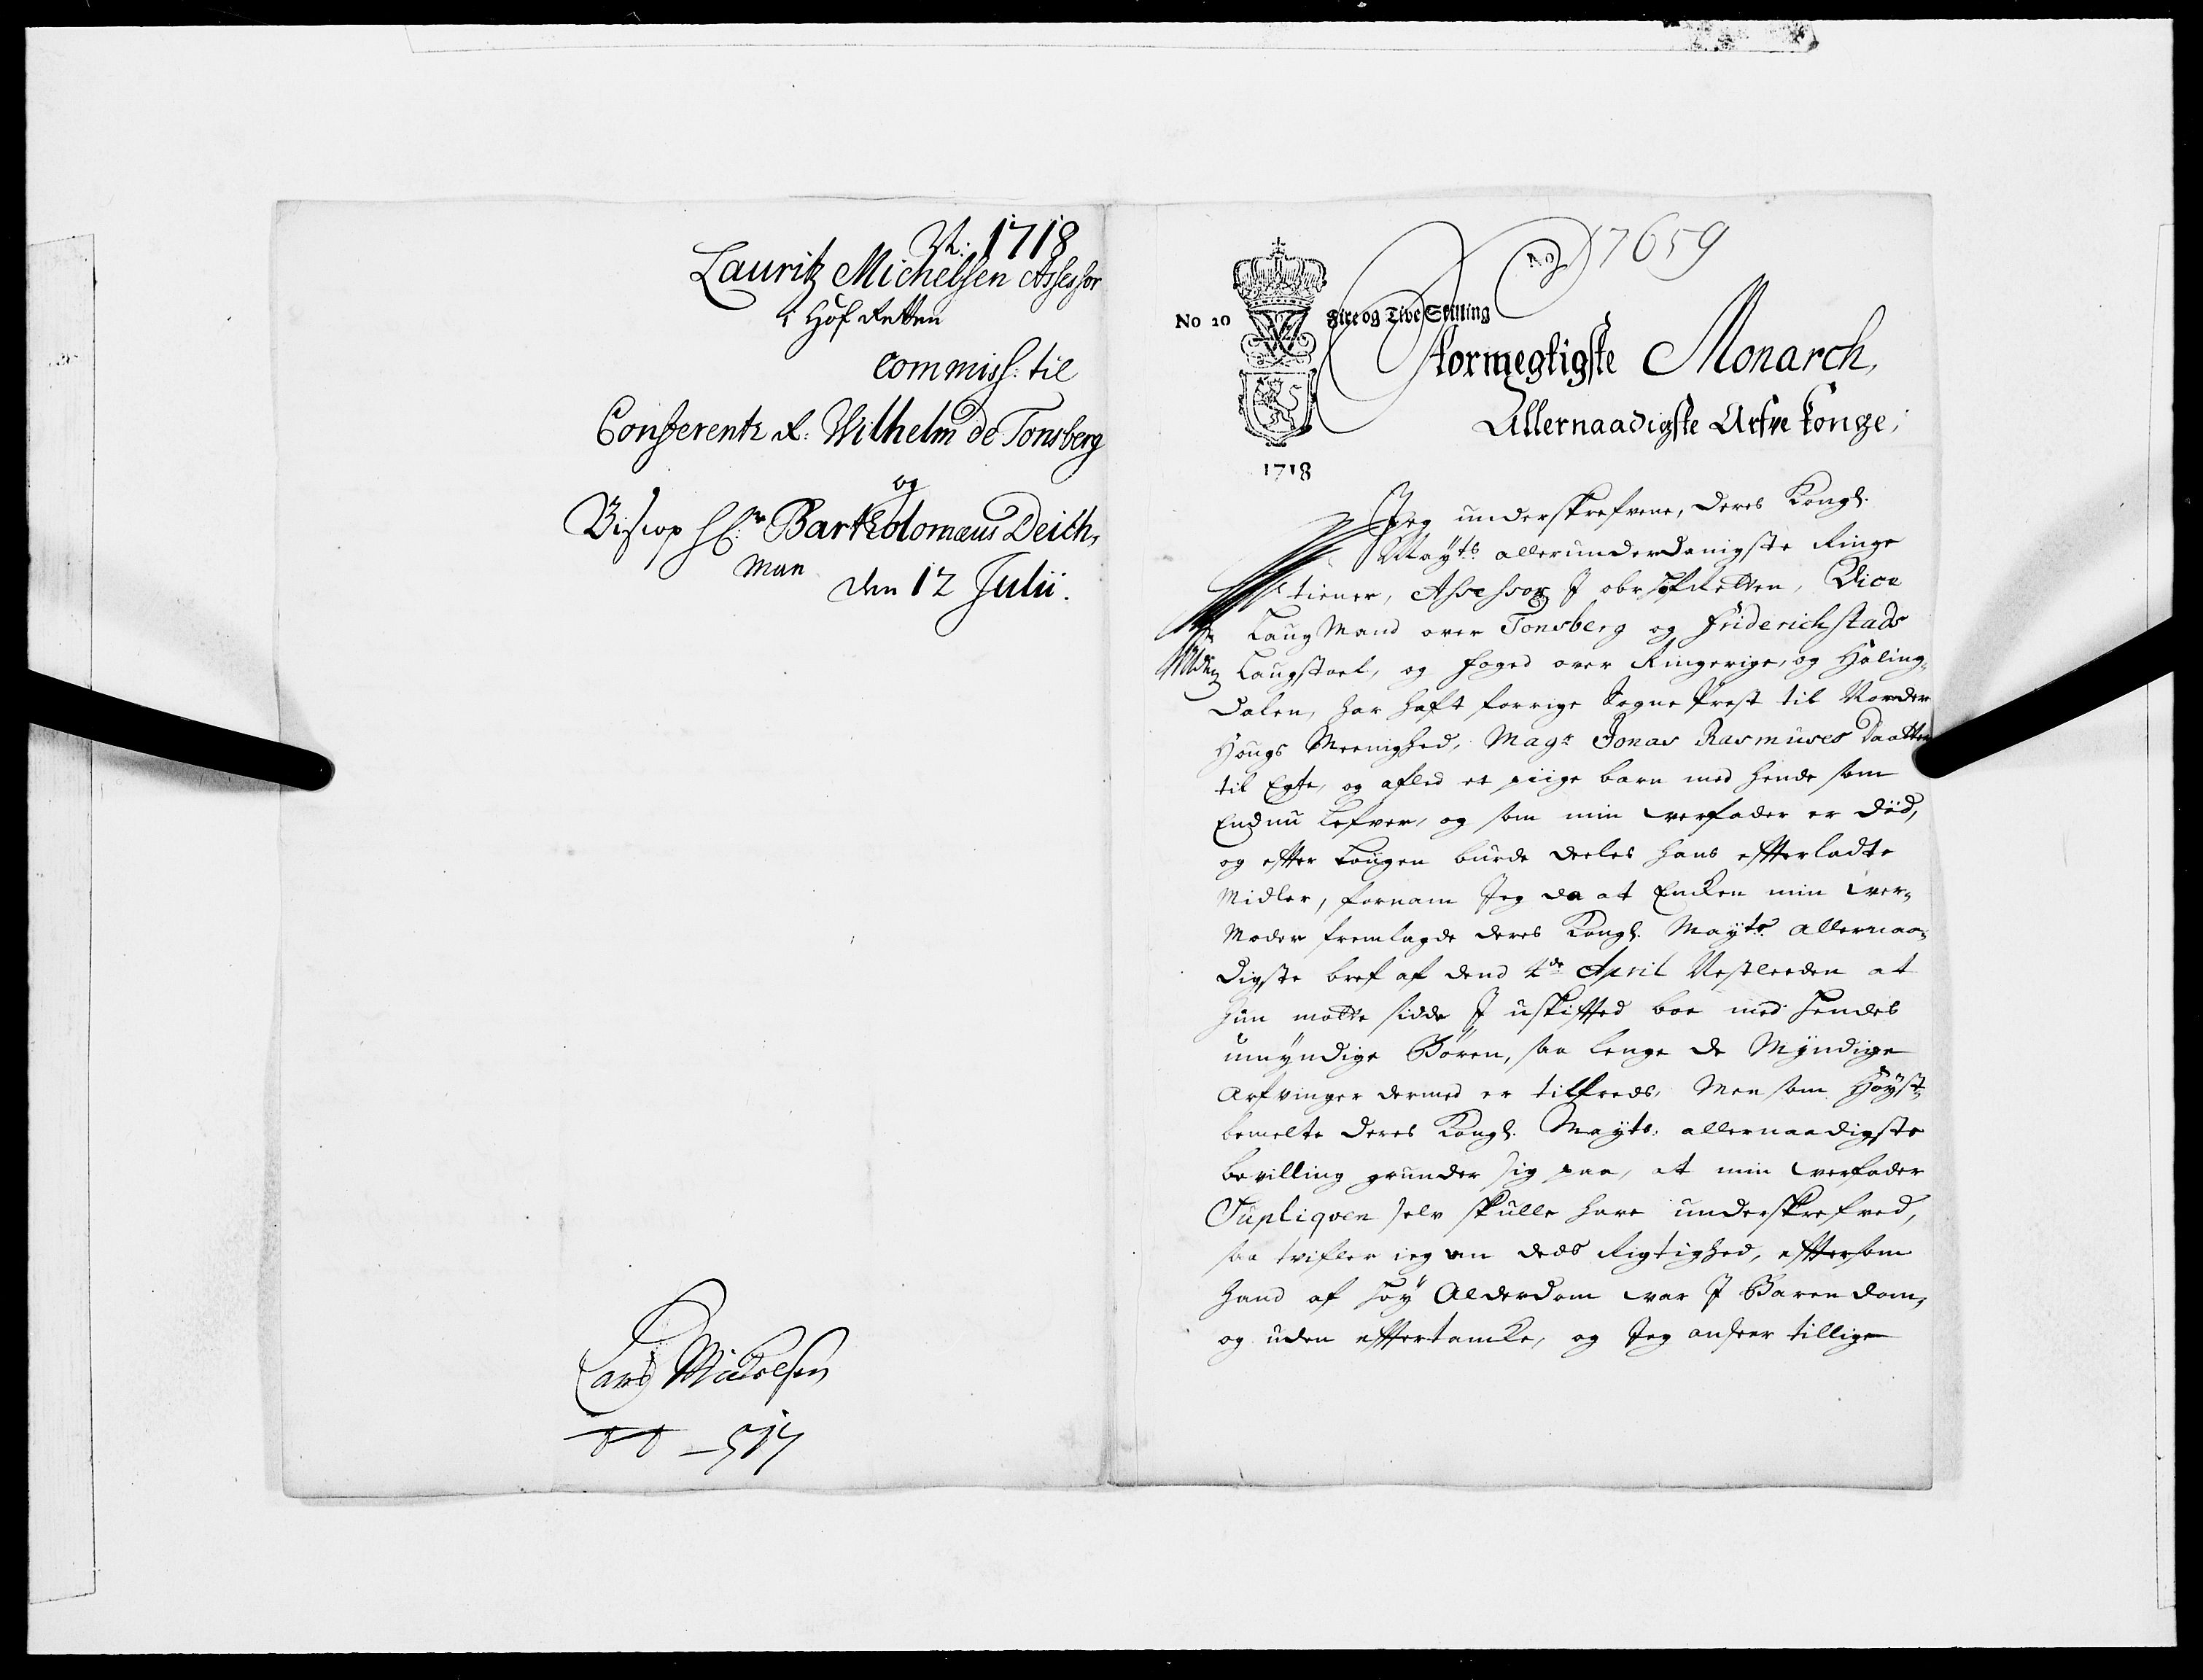 1718
Lauritz Michelsen Assessor
i Hof Retten
commiss: til
Conferentz R: Wilhelm de Tonsberg
og
Biscop Hr: Bartholomæus Deich,
man
den 12 Julii.
Lars Mickelsen
517
No 17659
No 20 Fire og Tive Skilling
Stormegtigste Monarch,
Allernaadigste Arfve Konge,
1718
Jeg underskrefvene, Deres Kongl.
Mayts allerunderdanigste Ringe
tiener, Assessor J ober Hof Retten, Vice
Laug Mand over Tonsberg og Friderichstads
Laugstoel, og foged over Ringerige, og Haling,
Dalen, har haft forrige Sogne Prest til Norder
Hougs Meenighed, Magr Jonas Rasmuses Daatter
til Egte, og afled et piige barn med hende som
Endnu Lefver, og som min verfader er Död,
og effter Lougen burde deeles hans effterladte
Midler, fornam Jeg da at Encken min ver,
Moder fremlagde deres Kongl. Mayts allernaa,
digste bref af dend 4de April Nestleeden at
hun motte sidde J uskiffted boe med hendes
umÿndige Børen, saa lenge de Mÿndige
Arfvinger dermed er tilfreds, Men som Høyst,
bemelte Deres Kongl. Mayts: allernaadigste
bevilling grunder sig paa, at min verfader
Supliqven selv skulle have underskrefved,
saa tvifler ieg om deds Rigtighed, effter som
hand af høy Alderdom var J Barendom,
og uden effterta­ncke, og Jeg anseer tillige